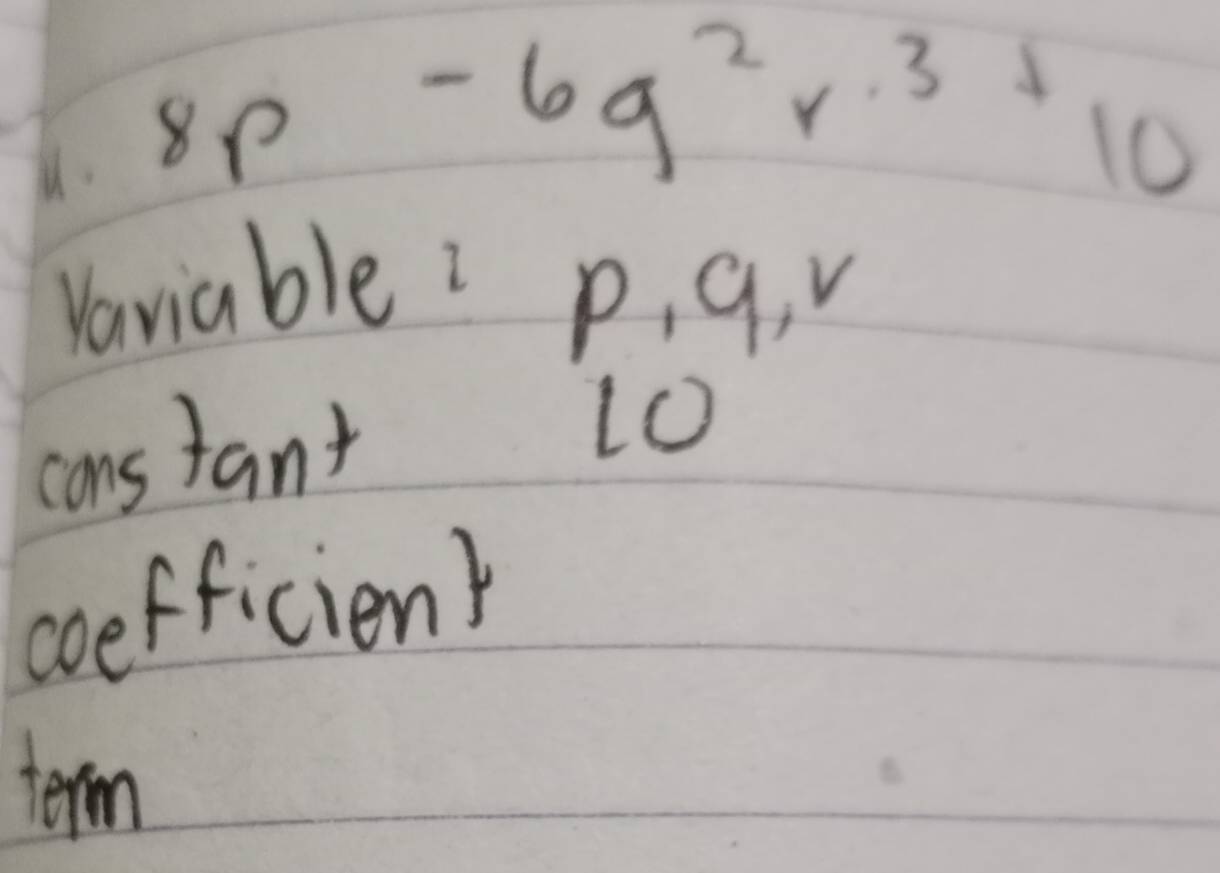 4. 8p - 6q² r·³ + 10
Variable: p, q, r
constant 10
coefficient
term